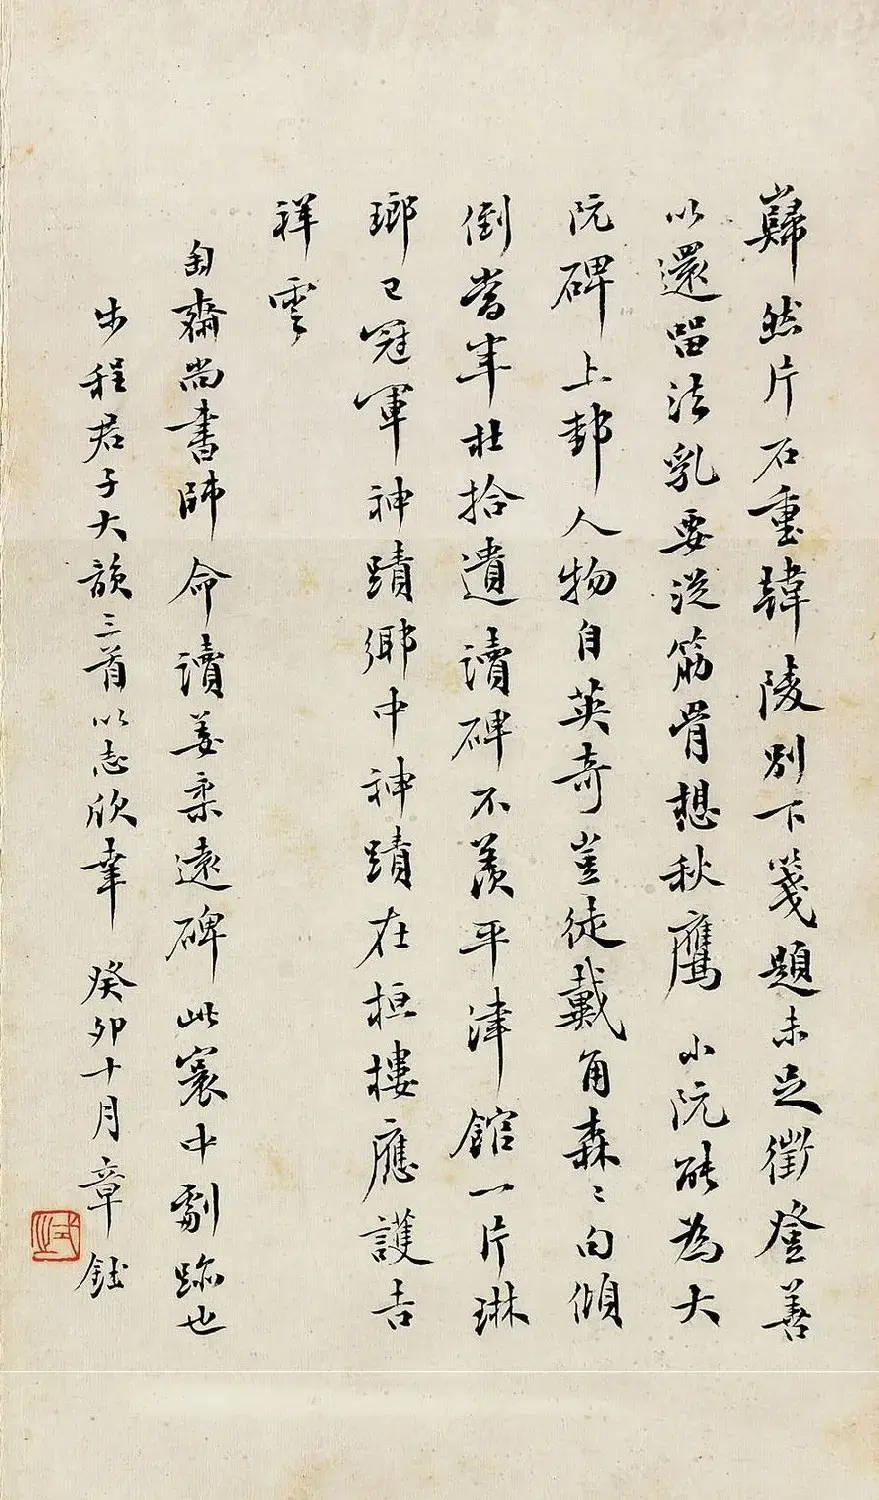 巋然片石重韓陵別下箋題未足徵登善
以還留法乳要從筋骨想秋鷹 小阮碑為大
阮碑上邽人物自英奇豈徒戴角森〻句傾
倒當年杜拾遺讀碑不羨平津館一片琳
瑯已冠軍神蹟鄉中神蹟在桓樓應護吉
祥雲
匋齋尚書師命讀姜柔遠碑此寰中劇跡也
步程君子大韻三首以志欣幸 癸卯十月章鈺